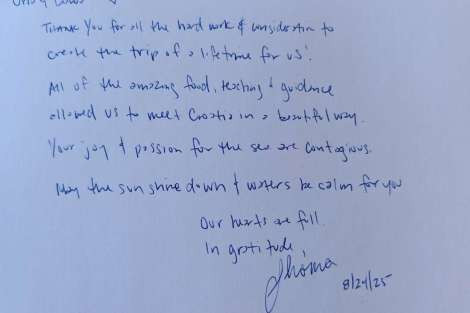 Thank You for all the hard work & consideration to
create the trip of a lifetime for us!
All of the amazing food, teaching & guidance
allowed us to meet Croatia in a beautiful way.
Your joy & passion for the sea are contagious.
May the sun shine down & waters be calm for you
Our hearts are full.
In gratitude
8/24/25